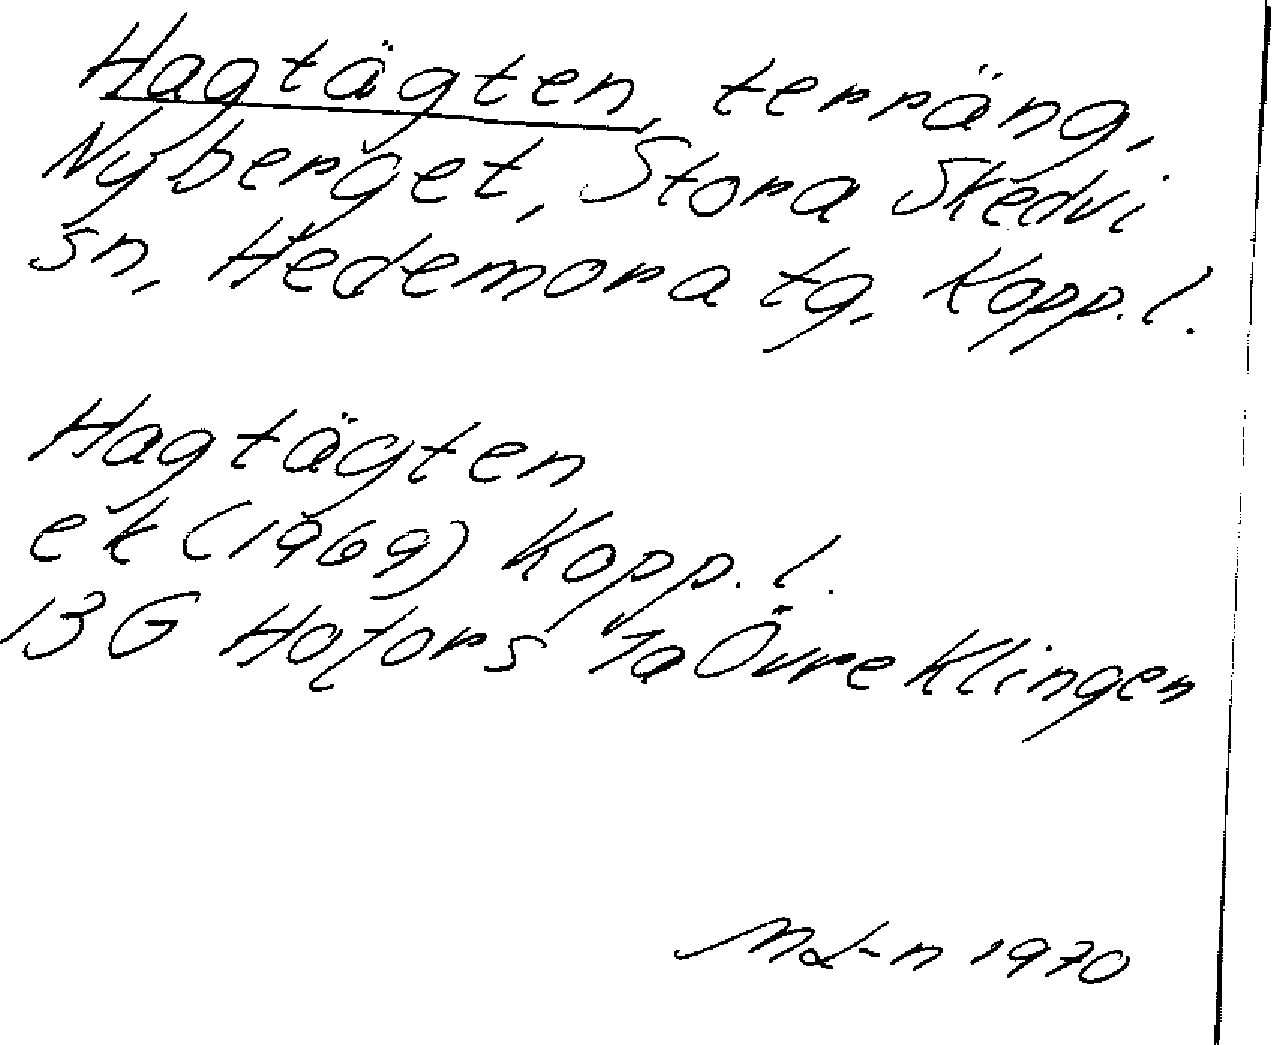 Hagtägten, terräng,
Nyberget, Stora Skedvi
sn, Hedemora tg, Kopp. l.
Hagtägten
ek (1969) Kopp. l.
13 G Hofors 1a Övre Klingen
ML-n 1970